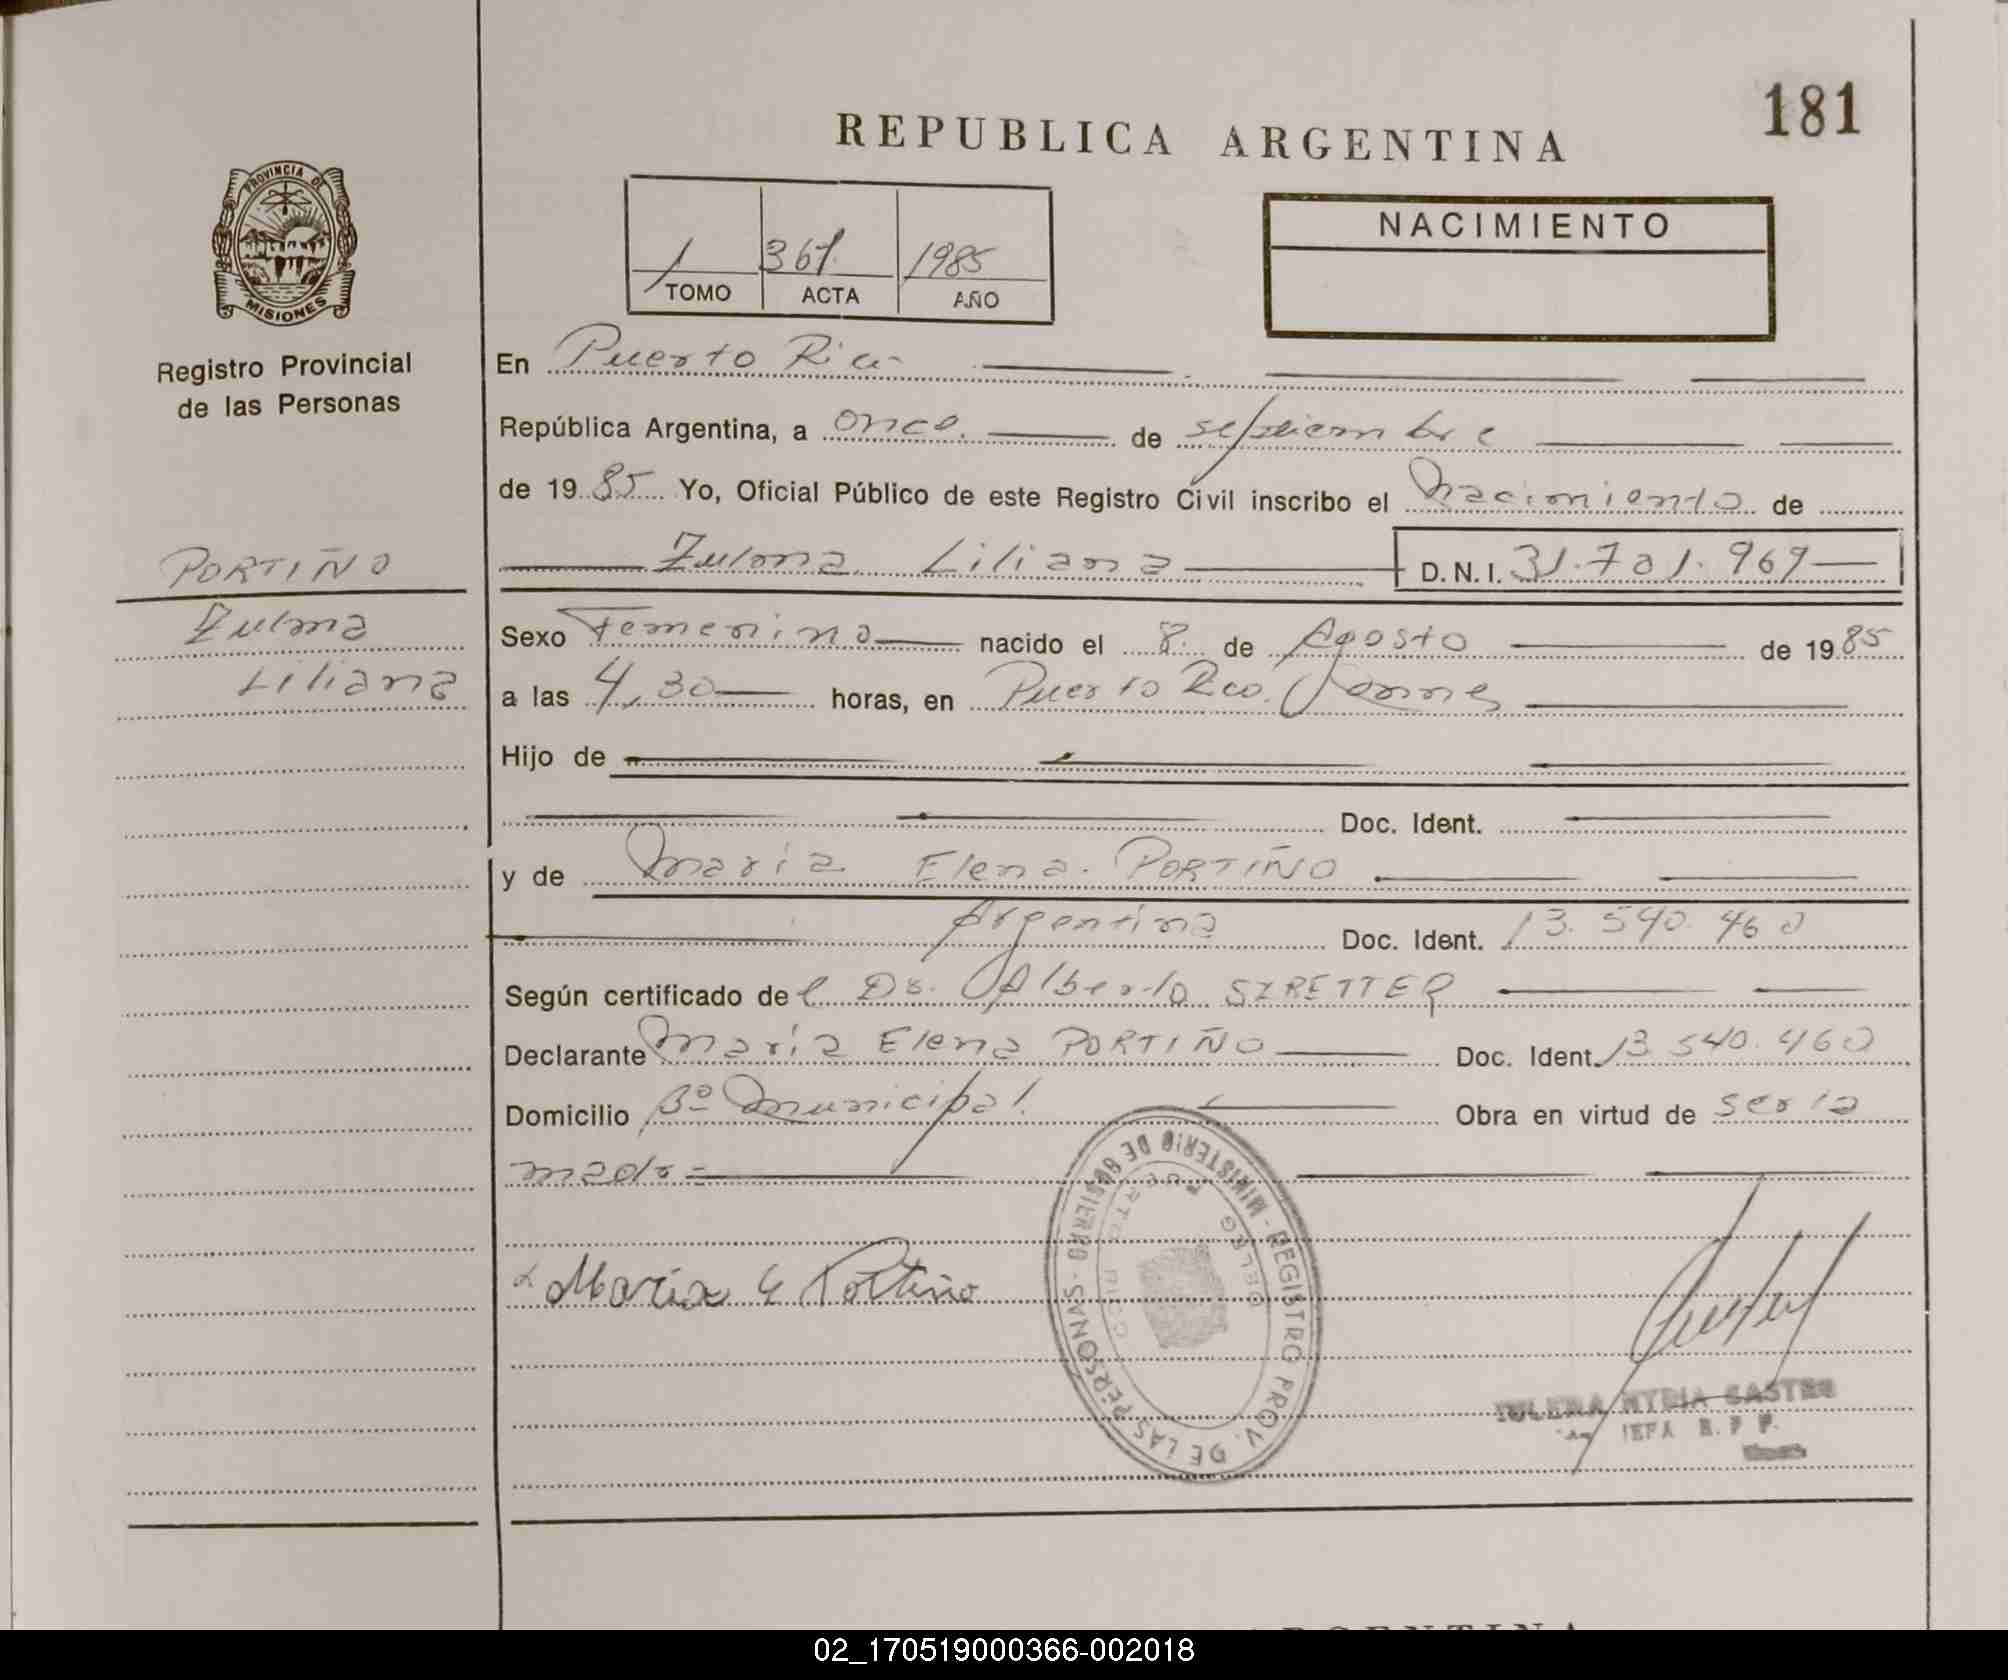 181
REPUBLICA ARGENTINA
PROVINCIA DE
MISIONES
Registro Provincial
de las Personas
1 361. 1985
TOMO ACTA AÑO
NACIMIENTO
En Puerto Rico
República Argentina, a once. de septiembre
de 19 85 Yo, Oficial Público de este Registro Civil inscribo el Nacimiento de
PORTIÑO
Zulma
Liliana
Zulma Liliana D.N.I. 31.701.969
Sexo Femenino nacido el 8. de Agosto de 19 85
a las 4,30 horas, en Puerto Rico.
Hijo de
Doc. Ident.
y de María Elena. PORTIÑO
Argentina Doc. Ident. 13.540.460
Según certificado del Dr. Alberto SZRETTER
Declarante María Elena PORTIÑO Doc. Ident. 13.540.460
Domicilio Bº Municipal. Obra en virtud de ser la
madre
María E Portiño
REGISTRO PROV. DE LAS PERSONAS - MINISTERIO DE GOBIERNO
DELEG. PUERTO RICO
CASTRO
R. P. P.
ARGENTINA
02_170519000366-002018